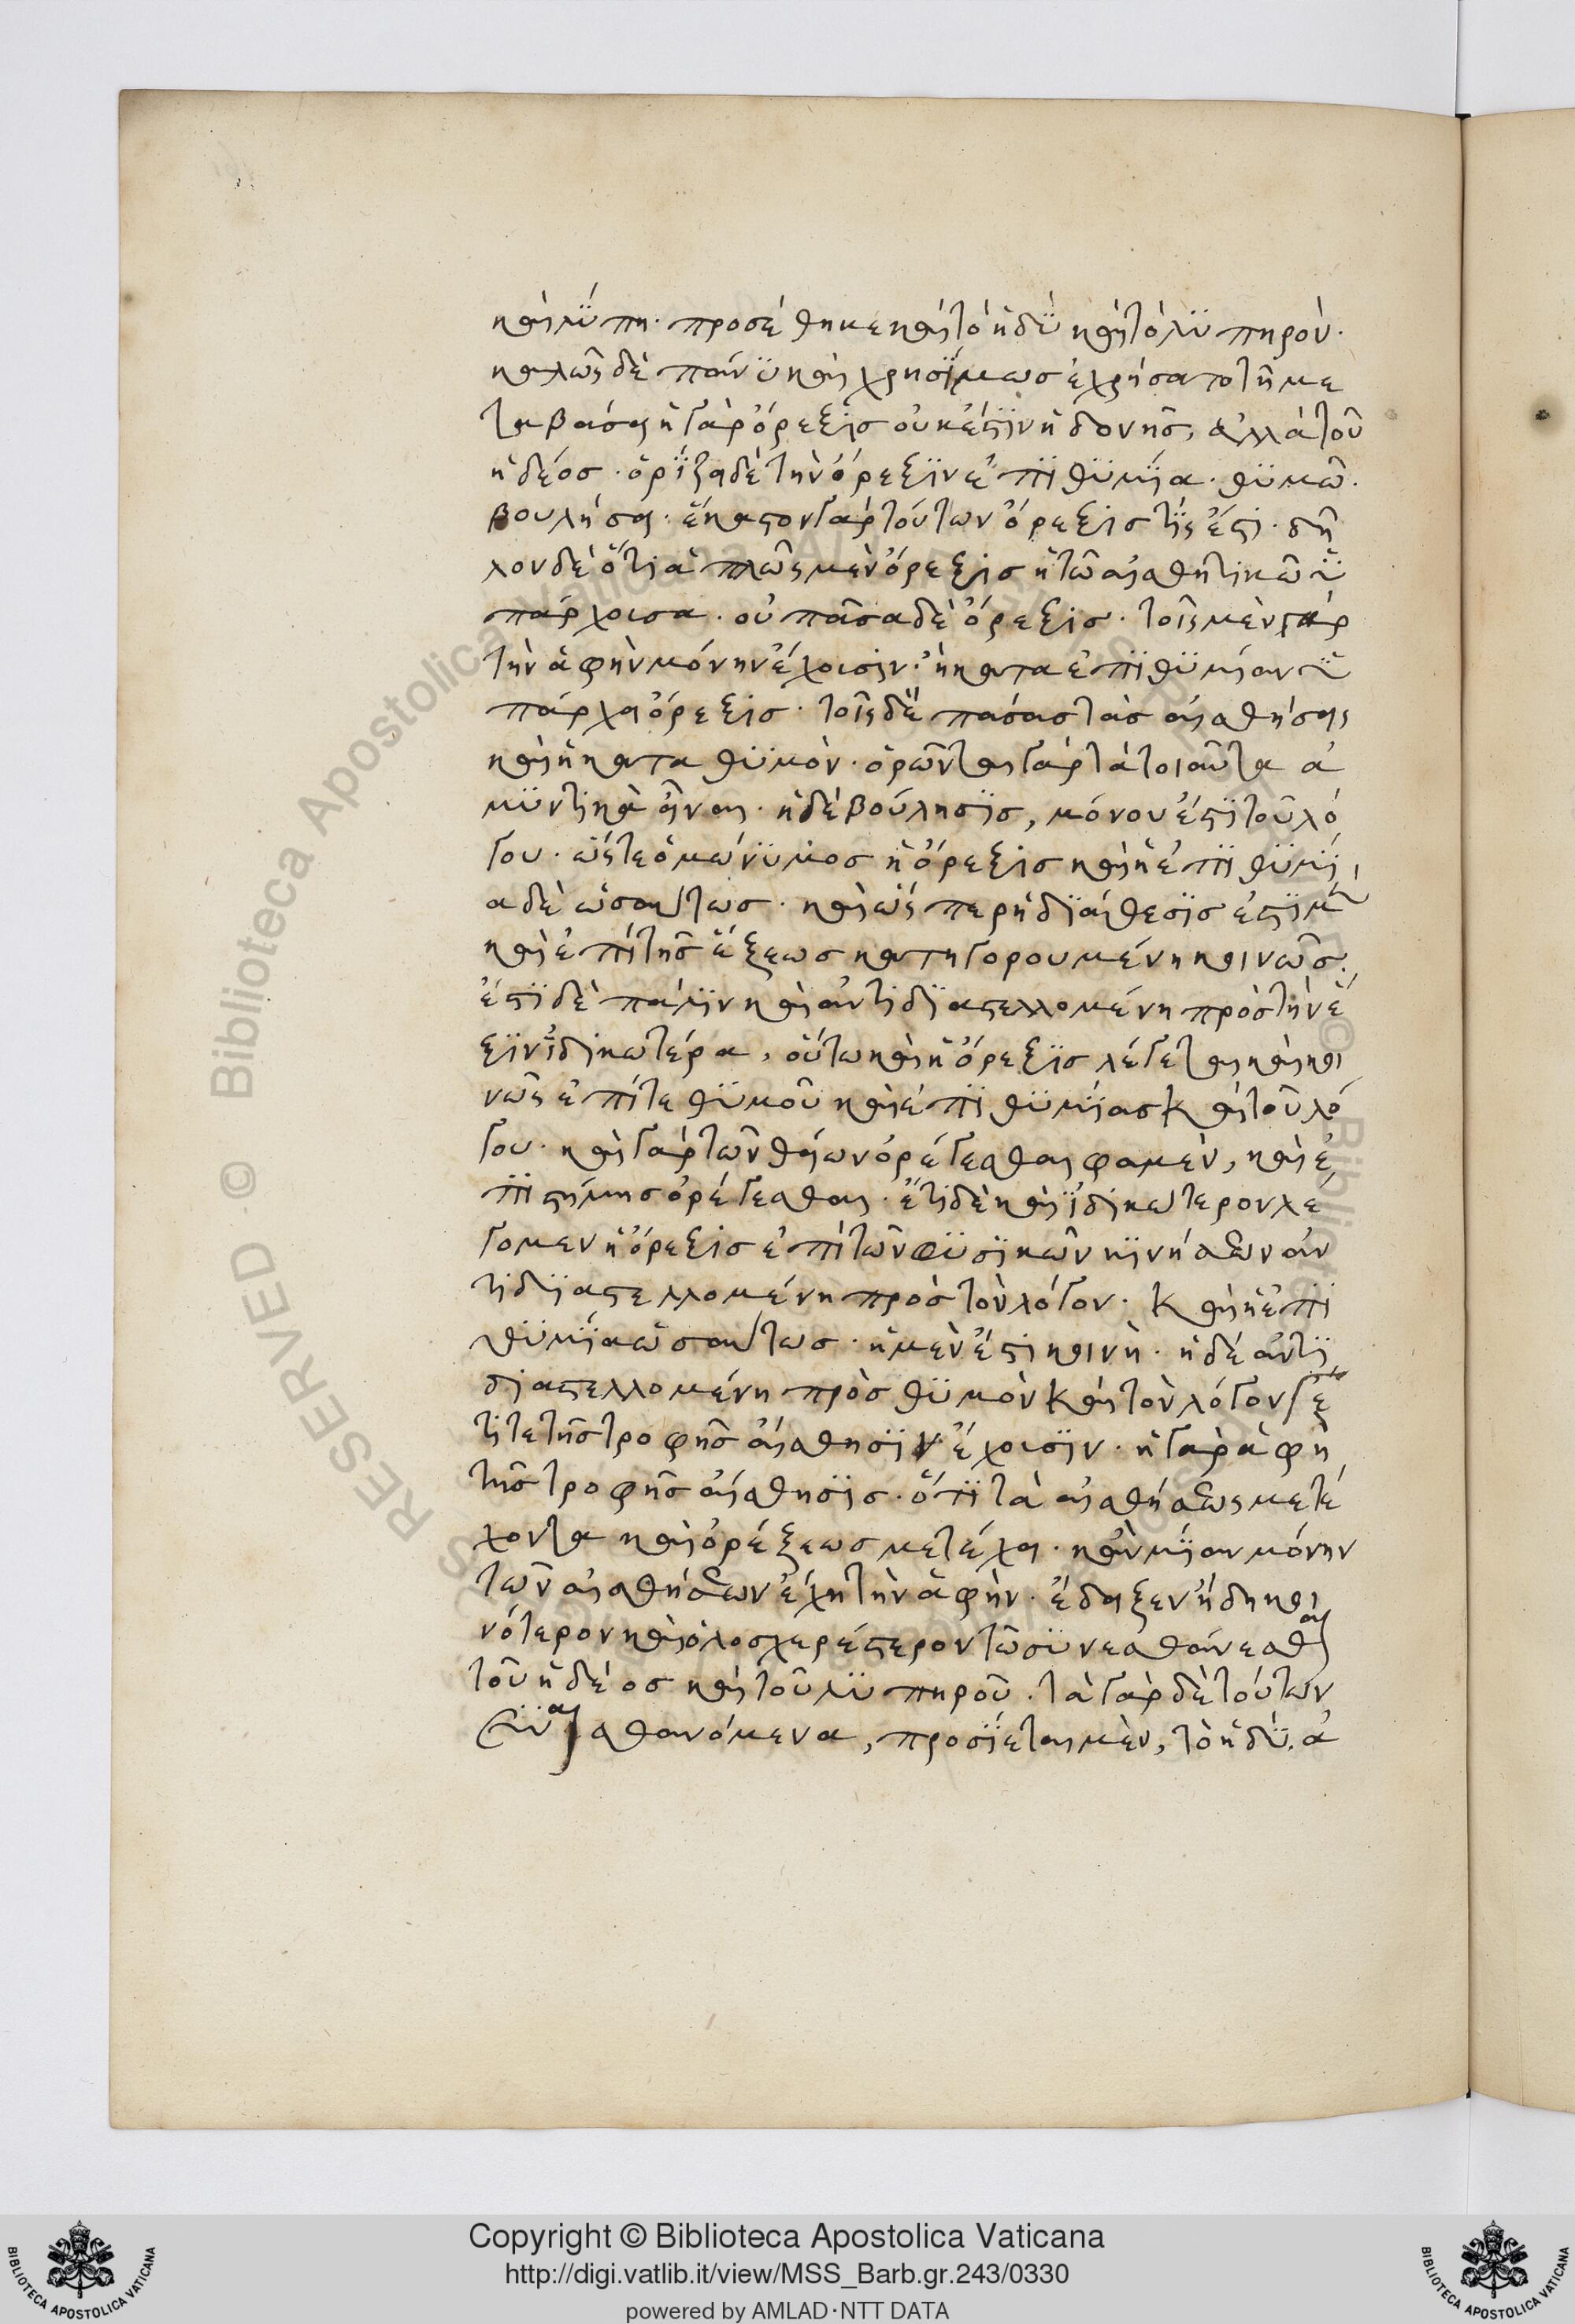 καὶ λύπη· προσέθηκε καὶ τὸ ἡδὺ καὶ τὸ λυπηρόν·
καλῶς δὲ πάνυ καὶ χρησίμως ἐχρήσατο τῇ με
ταβάσει ἡ γὰρ ὄρεξις οὐκ ἔστιν ἡδονῆς, ἀλλὰ τοῦ
ἡδέος· ὁρίζει δὲ τὴν ὄρεξιν ἐπιθυμία· θυμῶ·
βουλήσει· ἕκαστον γὰρ τούτων ὄρεξις τίς ἐστι· δῆ
λον δὲ ὅτι ἁπλῶς μὲν ὄρεξις ἡ τῶ αἰσθητικῶ ὑ
πάρχουσα· οὐ πᾶσα δὲ ὄρεξις· τοῖς μὲν γὰρ
τὴν ἁφὴν μόνην ἔχουσιν· ἡ κατα ἐπιθυμίαν ὑ
πάρχει ὄρεξις· τοῖς δὲ πάσας τὰς αἰσθήσεις
καὶ ἡ κατα θυμόν· ὁρῶνται γὰρ τὰ τοιαῦτα ἀ
μυντικὰ εἶναι· ἡ δὲ βούλησις, μόνου ἐστὶ τοῦ λό
γου· ὥστε ὁμώνυμος ἡ ὄρεξις καὶ ἡ ἐπιθυμί
α δὲ ὡσαύτως· καὶ ὥσπερ ἡ διάθεσις ἐστὶ μὲν
καὶ ἐπὶ τῆς ἕξεως κατηγορουμένη κοινῶς·
ἔστι δὲ πάλιν καὶ ἀντιδιαστελλομένη πρὸς τὴν ἕ
ξιν ἰδικωτέρα, οὕτω καὶ ἡ ὄρεξις λέγεται καὶ κοι
νῶς ἐπί τε θυμοῦ καὶ ἐπιθυμίας καὶ τοῦ λό
γου· καὶ γὰρ τῶν θείων ὀρέγεσθαι φαμὲν, καὶ ἐ
πιστήμης ὀρέγεσθαι· ἔτι δὲ καὶ ἰδικώτερον λε
γομεν ἡ ὄρεξις ἐπὶ τῶν φυσικῶν κινήσεων ἀν
τιδιαστελλομένη πρὸς τὸν λόγον· καὶ ἡ ἐπι
θυμία ὡσαύτως· ἡ μὲν ἐστὶ κοινὴ· ἡ δὲ ἀντι
διαστελλομένη πρὸς θυμὸν καὶ τὸν λόγον ἔ
τι τε τῆς τροφῆς αἴσθησιν ἔχουσιν· ἡ γὰρ ἁφὴ
τῆς τροφῆς αἴσθησις· ὅτι τὰ αἰσθήσεως μετέ
χοντα καὶ ὀρέξεως μετέχει· κἂν μίαν μόνην
τῶν αἰσθήσεων ἔχη τὴν ἁφὴν· ἔδειξεν ἤδη κοι
νότερον καὶ ὁλοσχερέστερον τῶ συνεσθάνεσθαι
τοῦ ἡδέος καὶ τοῦ λυπηροῦ· τὰ γὰρ δὲ τούτων
συναισθανόμενα, προσίεται μὲν, τὸ ἡδὺ, ἀ
Copyright © Biblioteca Apostolica Vaticana
http://digi.vatlib.it/view/MSS_Barb.gr.243/0330
powered by AMLAD·NTT DATA